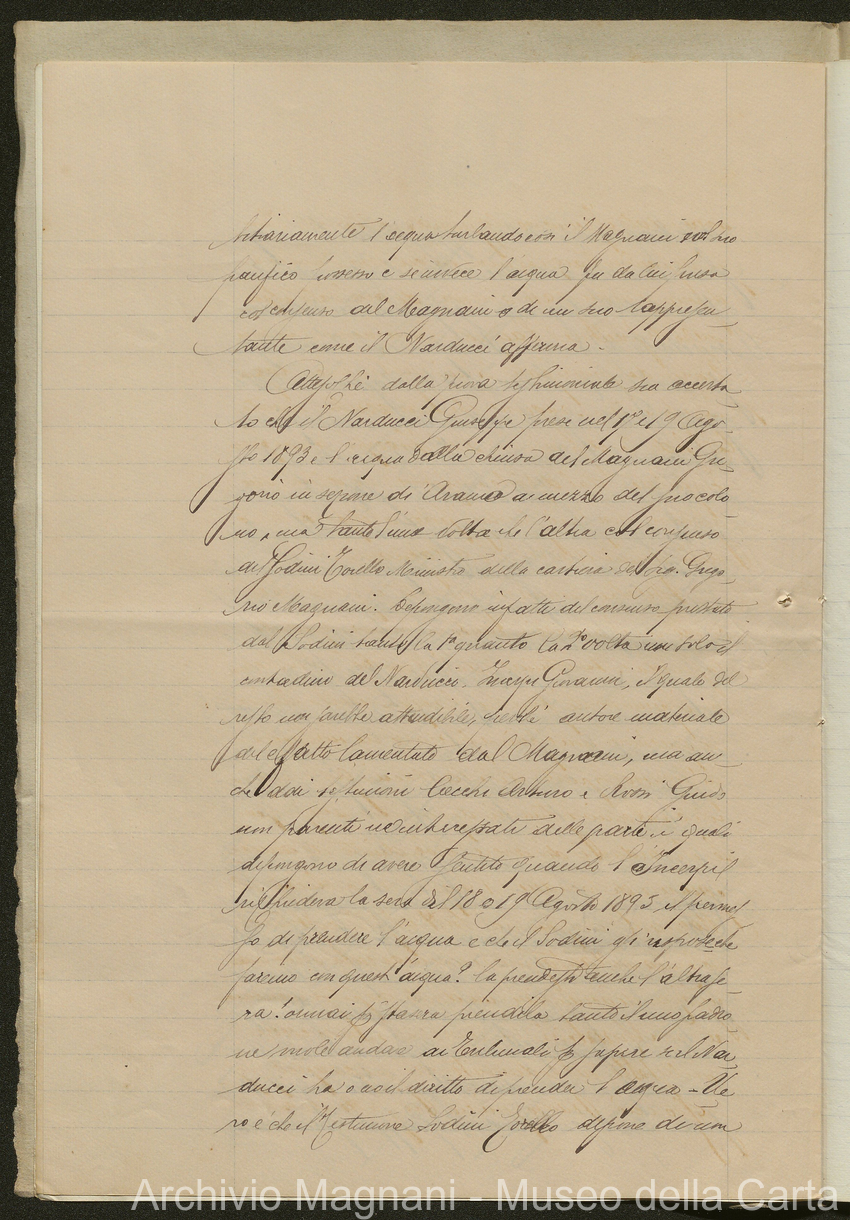 bitrariamente l'acqua turbando così il Magnani nel suo
pacifico possesso e se invece l'acqua fu da lui presa
col consenso del Magnani o di un suo rappresen
tante come il Narducci afferma.
Attesoché dalla prova testimoniale sia accerta
to che il Narducci Giuseppe prese nel 17 e 19 Ago
sto 1893 l'acqua dalla chiusa del Magnani Gre
gorio in sezione di Aramo a mezzo del suo colo
no, ma tanto l'una volta che l'altra col consenso
del Sodini Torello Ministro della cartiera del Sig. Grego
rio Magnani. Depongono infatti del consenso prestato
dal Sodini tanto la 1a quanto la 2a volta non solo il
contadino del Narducci, Giovanni, il quale del
resto non sarebbe attendibile, perché autore materiale
del fatto lamentato dal Magnani, ma an
che dai testimoni Cecchi Arturo e Rossi Guido
non parenti né interessati delle parti i quali
depongono di avere sentito quando l'Incerpi
richiedeva la sera del 18 o 19 Agosto 1893, il permes
so di prendere l'acqua e che il Sodini gli rispose che
faremo con quest'acqua? la prendesti anche l'altra se
ra! ormai per stasera prendila tanto il mio padro
ne vuole andare ai Tribunali per sapere se il Nar
ducci ha o no il diritto di prender l'acqua - Ve
ro è che il Testimone Sodini Torello depone di un
Archivio Magnani - Museo della Carta